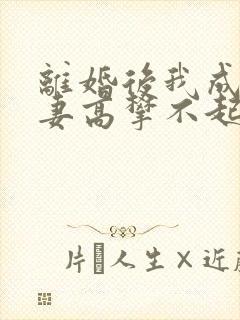 離婚後我成
妻高攀不起
片 人生×近